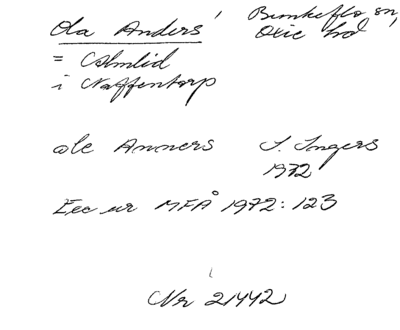 Ola Anders' Bunkeflo sn,
Oxie hd
= Almlid
i Naffentorp
ole Anners I. Ingers
1972
Exc ur MFÅ 1972: 123
Nr 21442